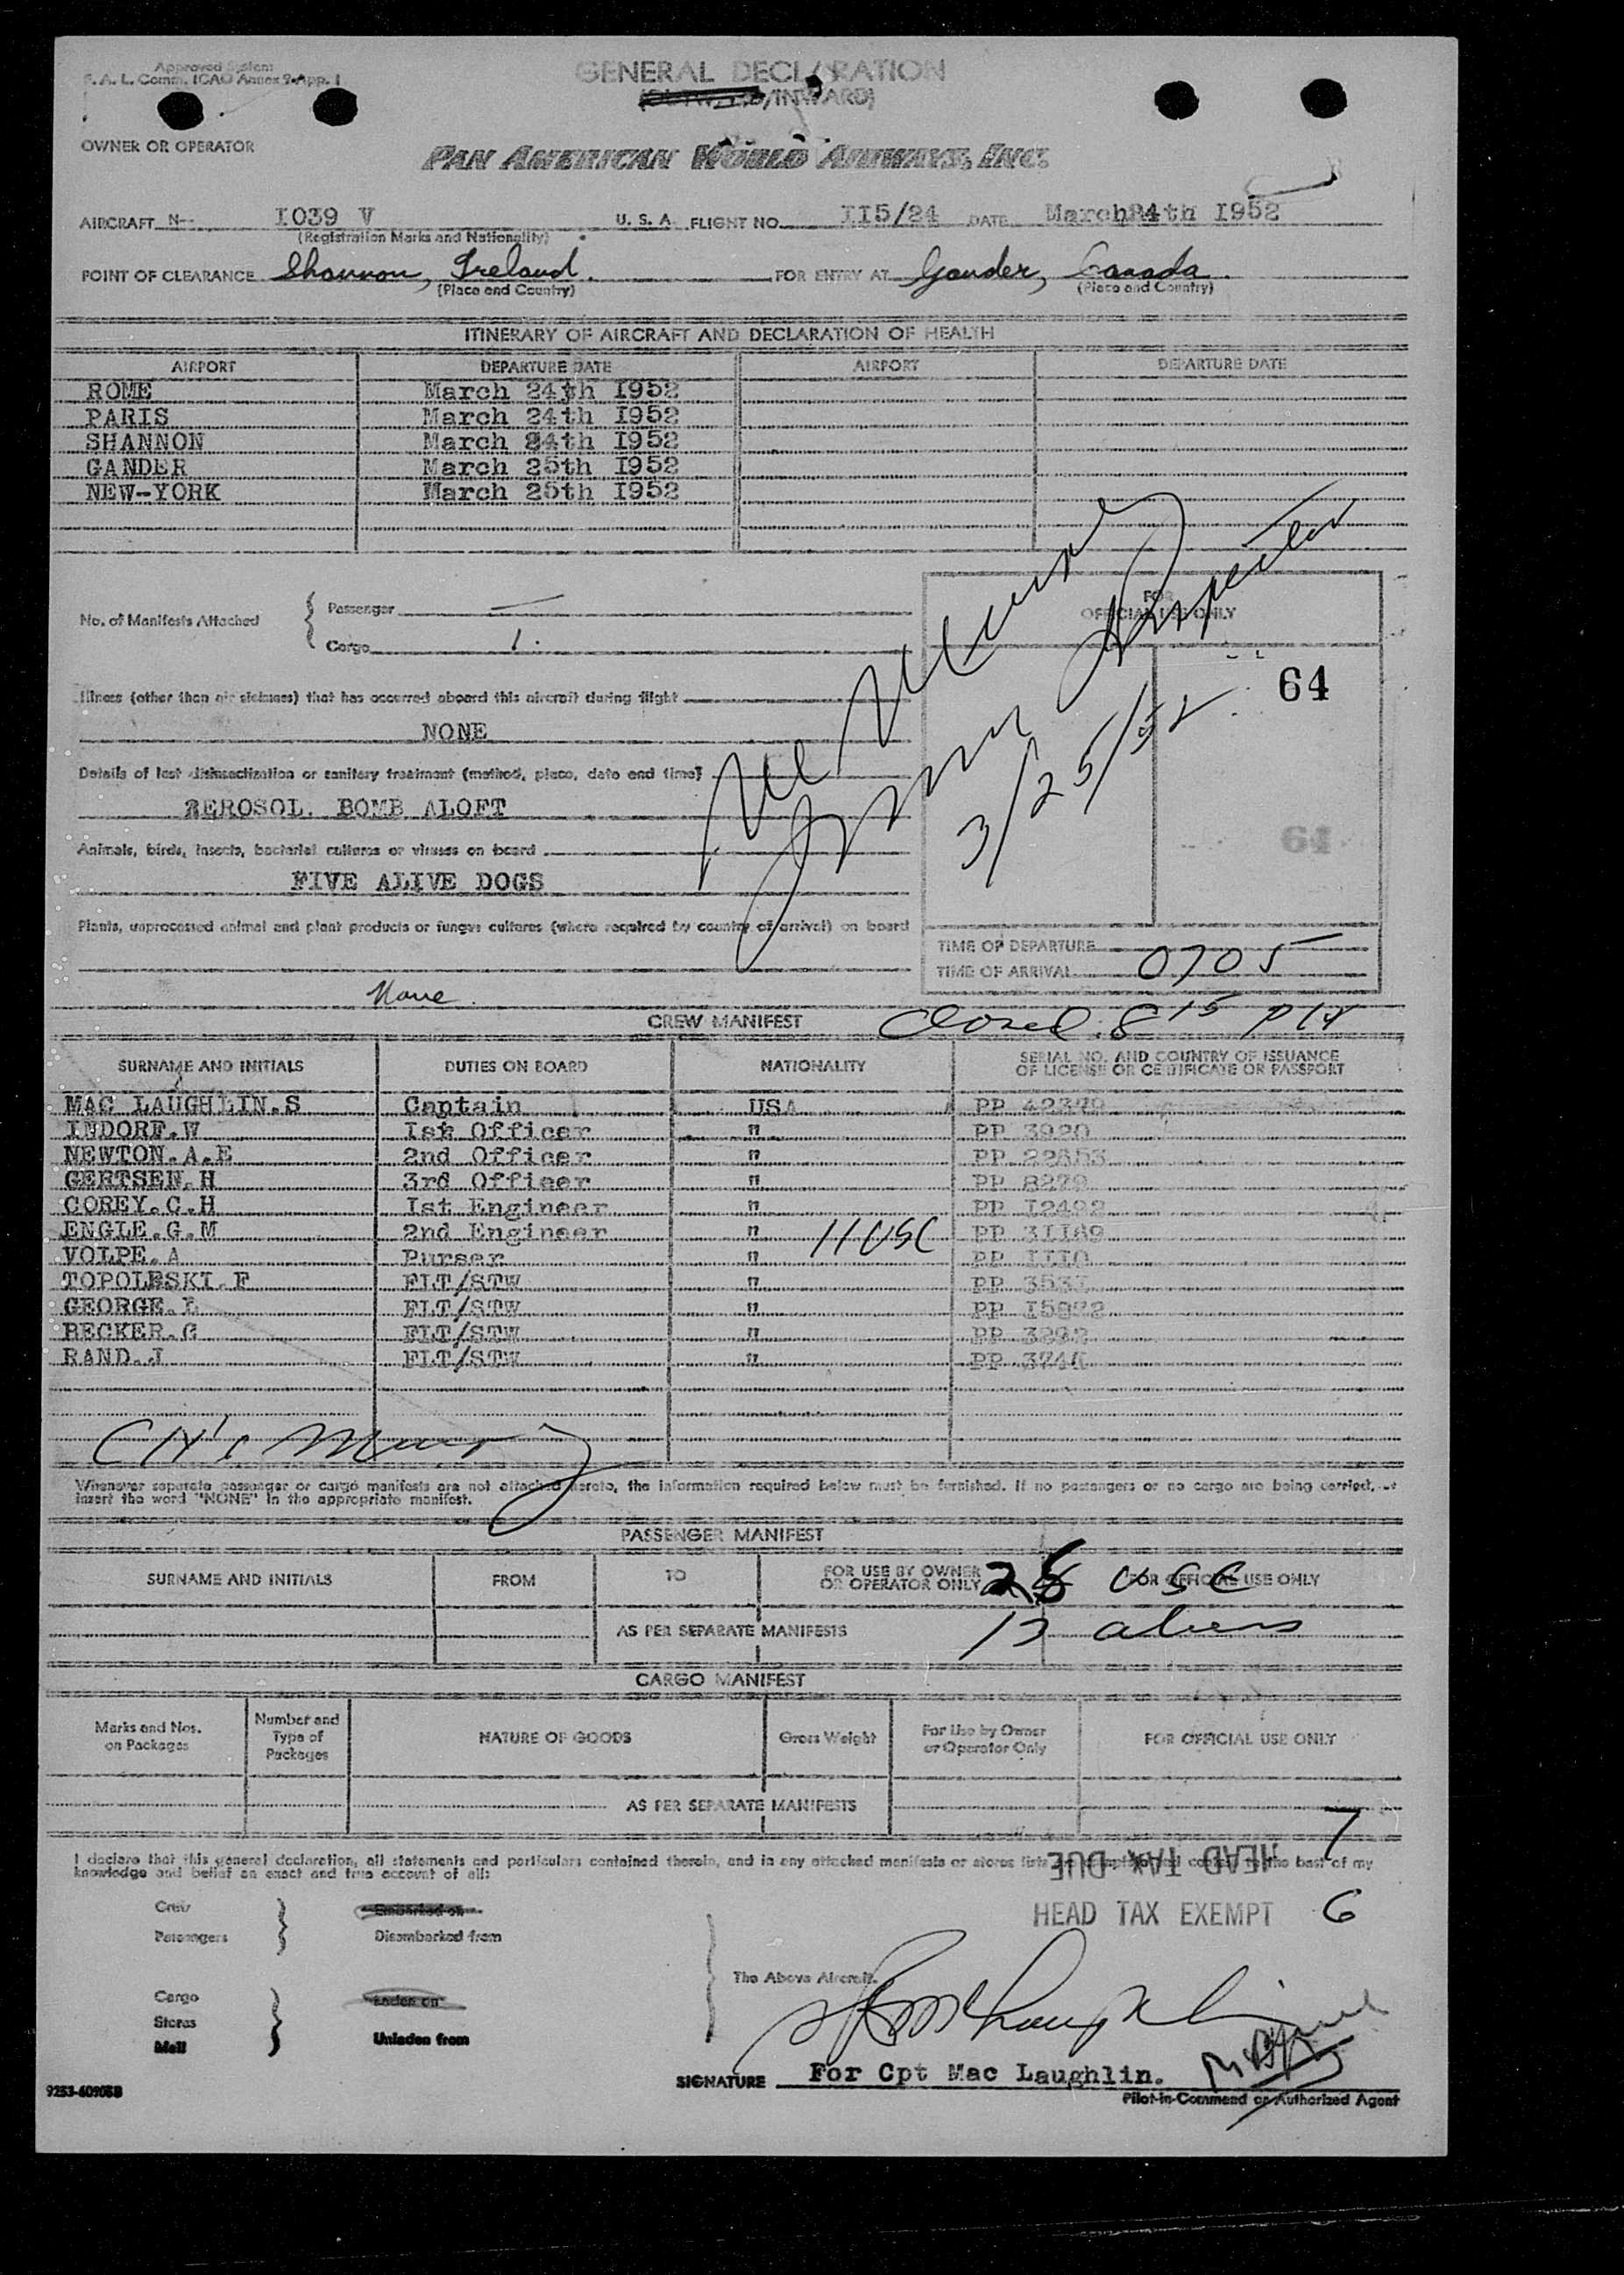 Approved System
F. A. L. Comm. ICAO Annex 9-App. 1
GENERAL DECLARATION
/INWARD)
OWNER OR OPERATOR
PAN AMERICAN WORLD AIRWAYS, INC.
AIRCRAFT N-- I039 V U. S. A. FLIGHT NO. II5/24 DATE March 24th I952
(Registration Marks and Nationality)
POINT OF CLEARANCE Shannon, Ireland. FOR ENTRY AT Gander, Canada.
(Place and Country) (Place and Country)
ITINERARY OF AIRCRAFT AND DECLARATION OF HEALTH
AIRPORT DEPARTURE DATE AIRPORT DEPARTURE DATE
ROME March 24th I952
PARIS March 24th I952
SHANNON March 24th I952
GANDER March 25th I952
NEW-YORK March 25th I952
No. of Manifests Attached { Passenger —
Cargo 1.
FOR
OFFICIAL USE ONLY
Inspector
3/25/52
64
64
Illness (other than air sickness) that has occurred aboard this aircraft during flight
NONE
Details of last disinsectization or sanitary treatment (method, place, date and time)
AEROSOL. BOMB ALOFT
Animals, birds, insects, bacterial cultures or viruses on board
FIVE ALIVE DOGS
Plants, unprocessed animal and plant products or fungus cultures (where required by country of arrival) on board
None.
TIME OF DEPARTURE
TIME OF ARRIVAL 0705
Closed 8 15
CREW MANIFEST
SURNAME AND INITIALS DUTIES ON BOARD NATIONALITY SERIAL NO. AND COUNTRY OF ISSUANCE OF LICENSE OR CERTIFICATE OR PASSPORT
MAC LAUGHLIN.S Captain USA PP
INDORF.W Ist Officer " PP 3920
NEWTON.A.E 2nd Officer " PP
GERTSEN.H 3rd Officer " PP 8279
COREY.C.H Ist Engineer " PP I2492
ENGLE.G.M 2nd Engineer " 11 USC PP 3II69
VOLPE.A Purser " PP III0
TOPOLESKI.F FLT/STW " PP 3537
GEORGE.L FLT/STW " PP
BECKER.G FLT/STW " PP 3292
RAND.J FLT/STW " PP
Whenever separate passenger or cargo manifests are not attached hereto, the information required below must be furnished. If no passengers or no cargo are being carried,
insert the word "NONE" in the appropriate manifest.
PASSENGER MANIFEST
SURNAME AND INITIALS FROM TO FOR USE BY OWNER OR OPERATOR ONLY FOR OFFICIAL USE ONLY
USC
AS PER SEPARATE MANIFESTS
13 aliens
CARGO MANIFEST
Marks and Nos. on Packages Number and Type of Packages NATURE OF GOODS Gross Weight For Use by Owner or Operator Only FOR OFFICIAL USE ONLY
AS PER SEPARATE MANIFESTS
HEAD TAX DUE 7
I declare that this general declaration, all statements and particulars contained therein, and in any attached manifests or stores lists the best of my
knowledge and belief an exact and true account of all:
HEAD TAX EXEMPT 6
Crew
Passengers
Embarked on
Disembarked from
The Above Aircraft.
Cargo
Stores
Mail
Laden on
Unladen from
SIGNATURE For Cpt Mac Laughlin.
Pilot-in-Command or Authorized Agent
9253-60905B